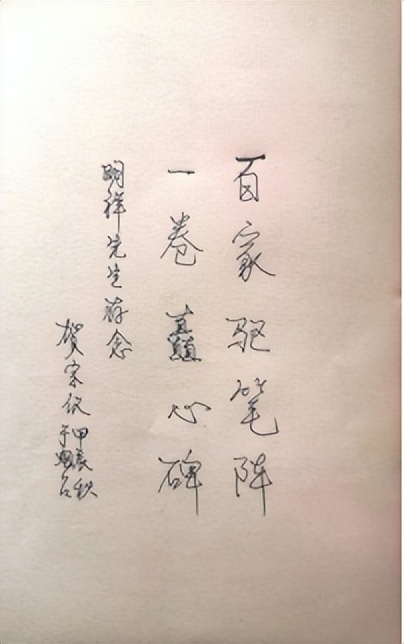 百家驰笔阵
一卷矗心碑
明祥先生存念
贺宗仪
甲辰秋
于烟台